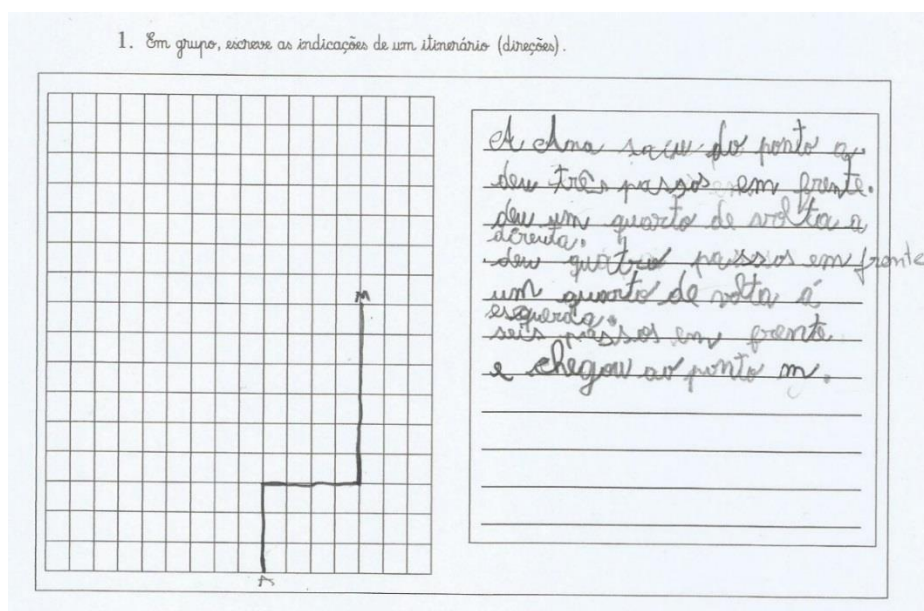 1. Em grupo, escreve as indicações de um itinerário (direções).
A Ana saiu do ponto a.
deu três passos em frente.
deu um quarto de volta a
direita.
deu quatro passos em frente
um quarto de volta á
esquerda.
seis passos em frente
e chegou ao ponto m.
M
A